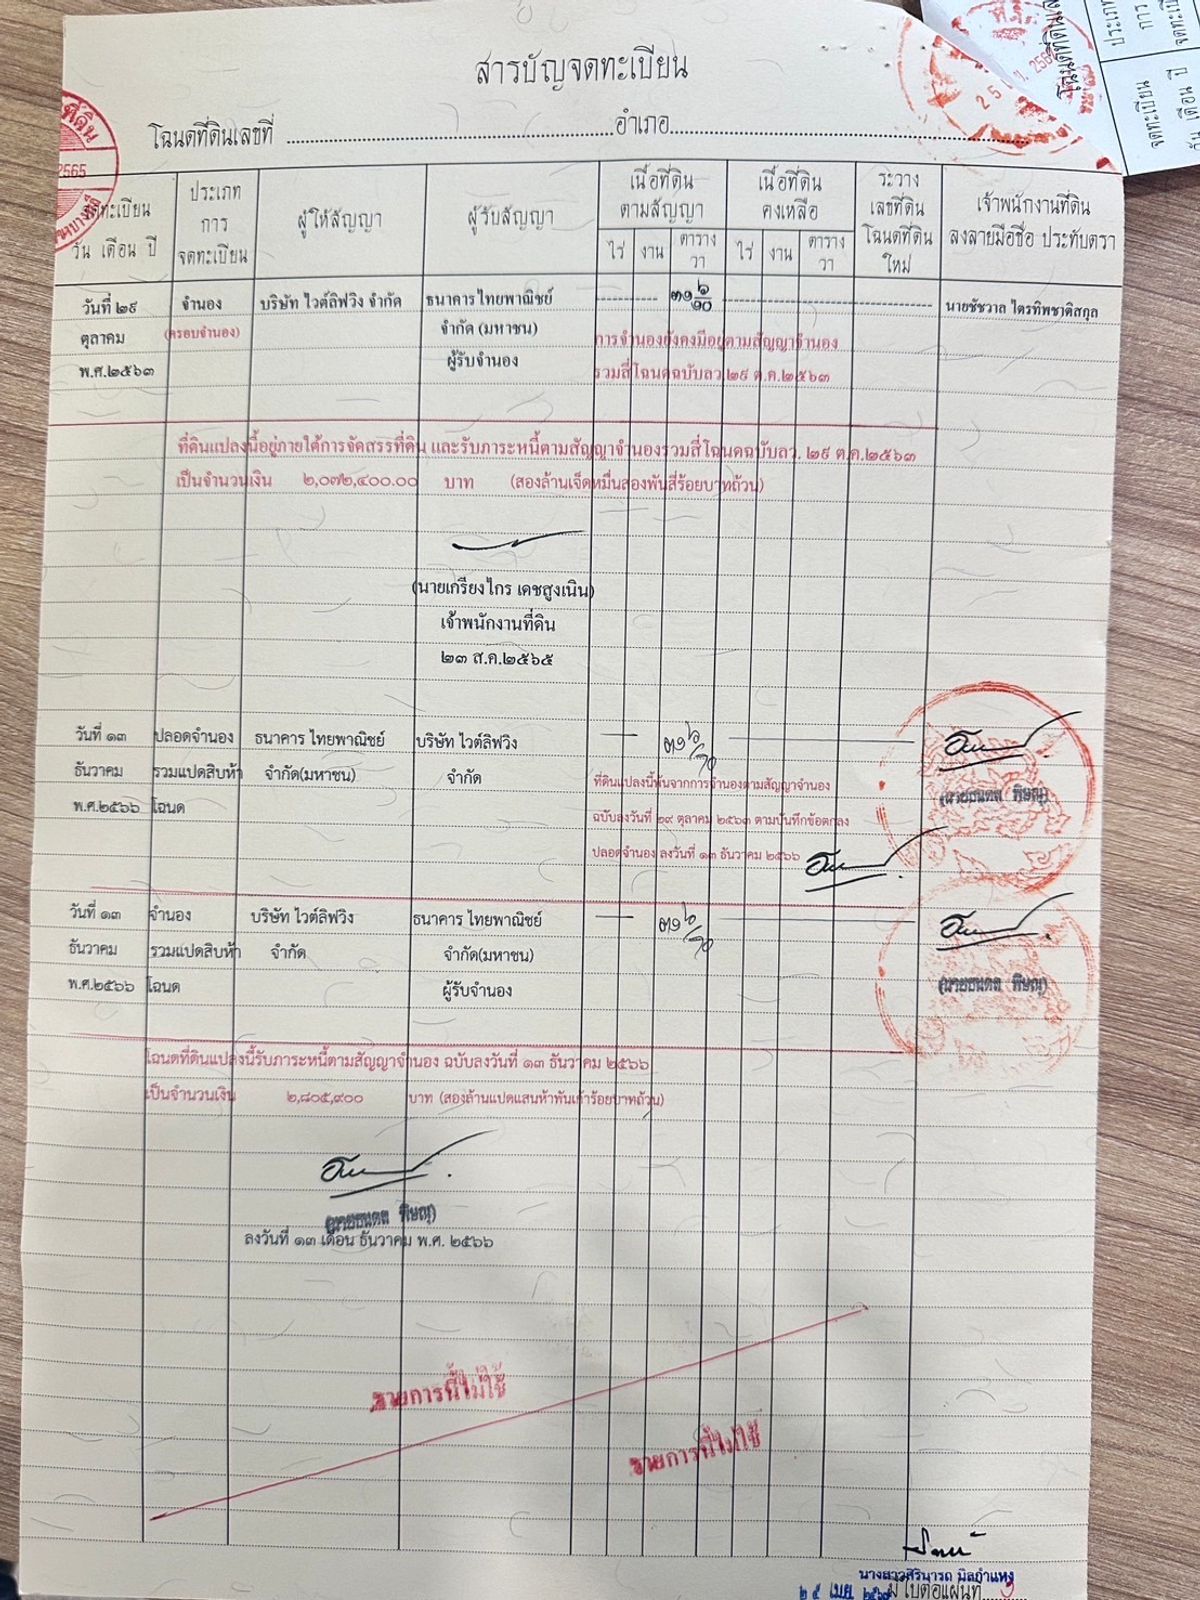 สารบัญจดทะเบียน
โฉนดที่ดินเลขที่ ........ อำเภอ........
จดทะเบียน วัน เดือน ปี
ประเภทการจดทะเบียน
ผู้ให้สัญญา
ผู้รับสัญญา
เนื้อที่ดินตามสัญญา
ไร่ งาน ตารางวา
เนื้อที่ดินคงเหลือ
ไร่ งาน ตารางวา
ระวาง เลขที่ดิน โฉนดที่ดินใหม่
เจ้าพนักงานที่ดิน ลงลายมือชื่อ ประทับตรา
วันที่ ๒๙ จำนอง บริษัท ไวต์ลิฟวิง จำกัด ธนาคารไทยพาณิชย์ ๓๑ ๖/๑๐ นายชัชวาล ไตรทิพชาติสกุล
ตุลาคม (ครอบจำนอง) จำกัด (มหาชน) การจำนองยังคงมีอยู่ตามสัญญาจำนอง
พ.ศ.๒๕๖๓ ผู้รับจำนอง รวมสี่โฉนดฉบับลว.๒๙ ต.ค.๒๕๖๓
ที่ดินแปลงนี้อยู่ภายใต้การจัดสรรที่ดิน และรับภาระหนี้ตามสัญญาจำนองรวมสี่โฉนดฉบับลว. ๒๙ ต.ค.๒๕๖๓
เป็นจำนวนเงิน ๒,๐๗๒,๔๐๐.๐๐ บาท (สองล้านเจ็ดหมื่นสองพันสี่ร้อยบาทถ้วน)
(นายเกรียงไกร เดชสูงเนิน)
เจ้าพนักงานที่ดิน
๒๓ ส.ค.๒๕๖๕
วันที่ ๑๓ ปลอดจำนอง ธนาคาร ไทยพาณิชย์ บริษัท ไวต์ลิฟวิง ๓๑ ๖/๑๐
ธันวาคม รวมแปดสิบห้า จำกัด(มหาชน) จำกัด ที่ดินแปลงนี้พ้นจากการจำนองตามสัญญาจำนอง
พ.ศ.๒๕๖๖ โฉนด ฉบับลงวันที่ ๒๙ ตุลาคม ๒๕๖๓ ตามบันทึกข้อตกลง
ปลอดจำนอง ลงวันที่ ๑๓ ธันวาคม ๒๕๖๖
วันที่ ๑๓ จำนอง บริษัท ไวต์ลิฟวิง ธนาคาร ไทยพาณิชย์ ๓๑ ๖/๑๐
ธันวาคม รวมแปดสิบห้า จำกัด จำกัด(มหาชน)
พ.ศ.๒๕๖๖ โฉนด ผู้รับจำนอง
โฉนดที่ดินแปลงนี้รับภาระหนี้ตามสัญญาจำนอง ฉบับลงวันที่ ๑๓ ธันวาคม ๒๕๖๖
เป็นจำนวนเงิน ๒,๘๐๕,๙๐๐ บาท (สองล้านแปดแสนห้าพันเก้าร้อยบาทถ้วน)
ลงวันที่ ๑๓ เดือน ธันวาคม พ.ศ. ๒๕๖๖
รายการนี้ไม่ใช้
รายการนี้ไม่ใช้
มีใบต่อแผ่นที่